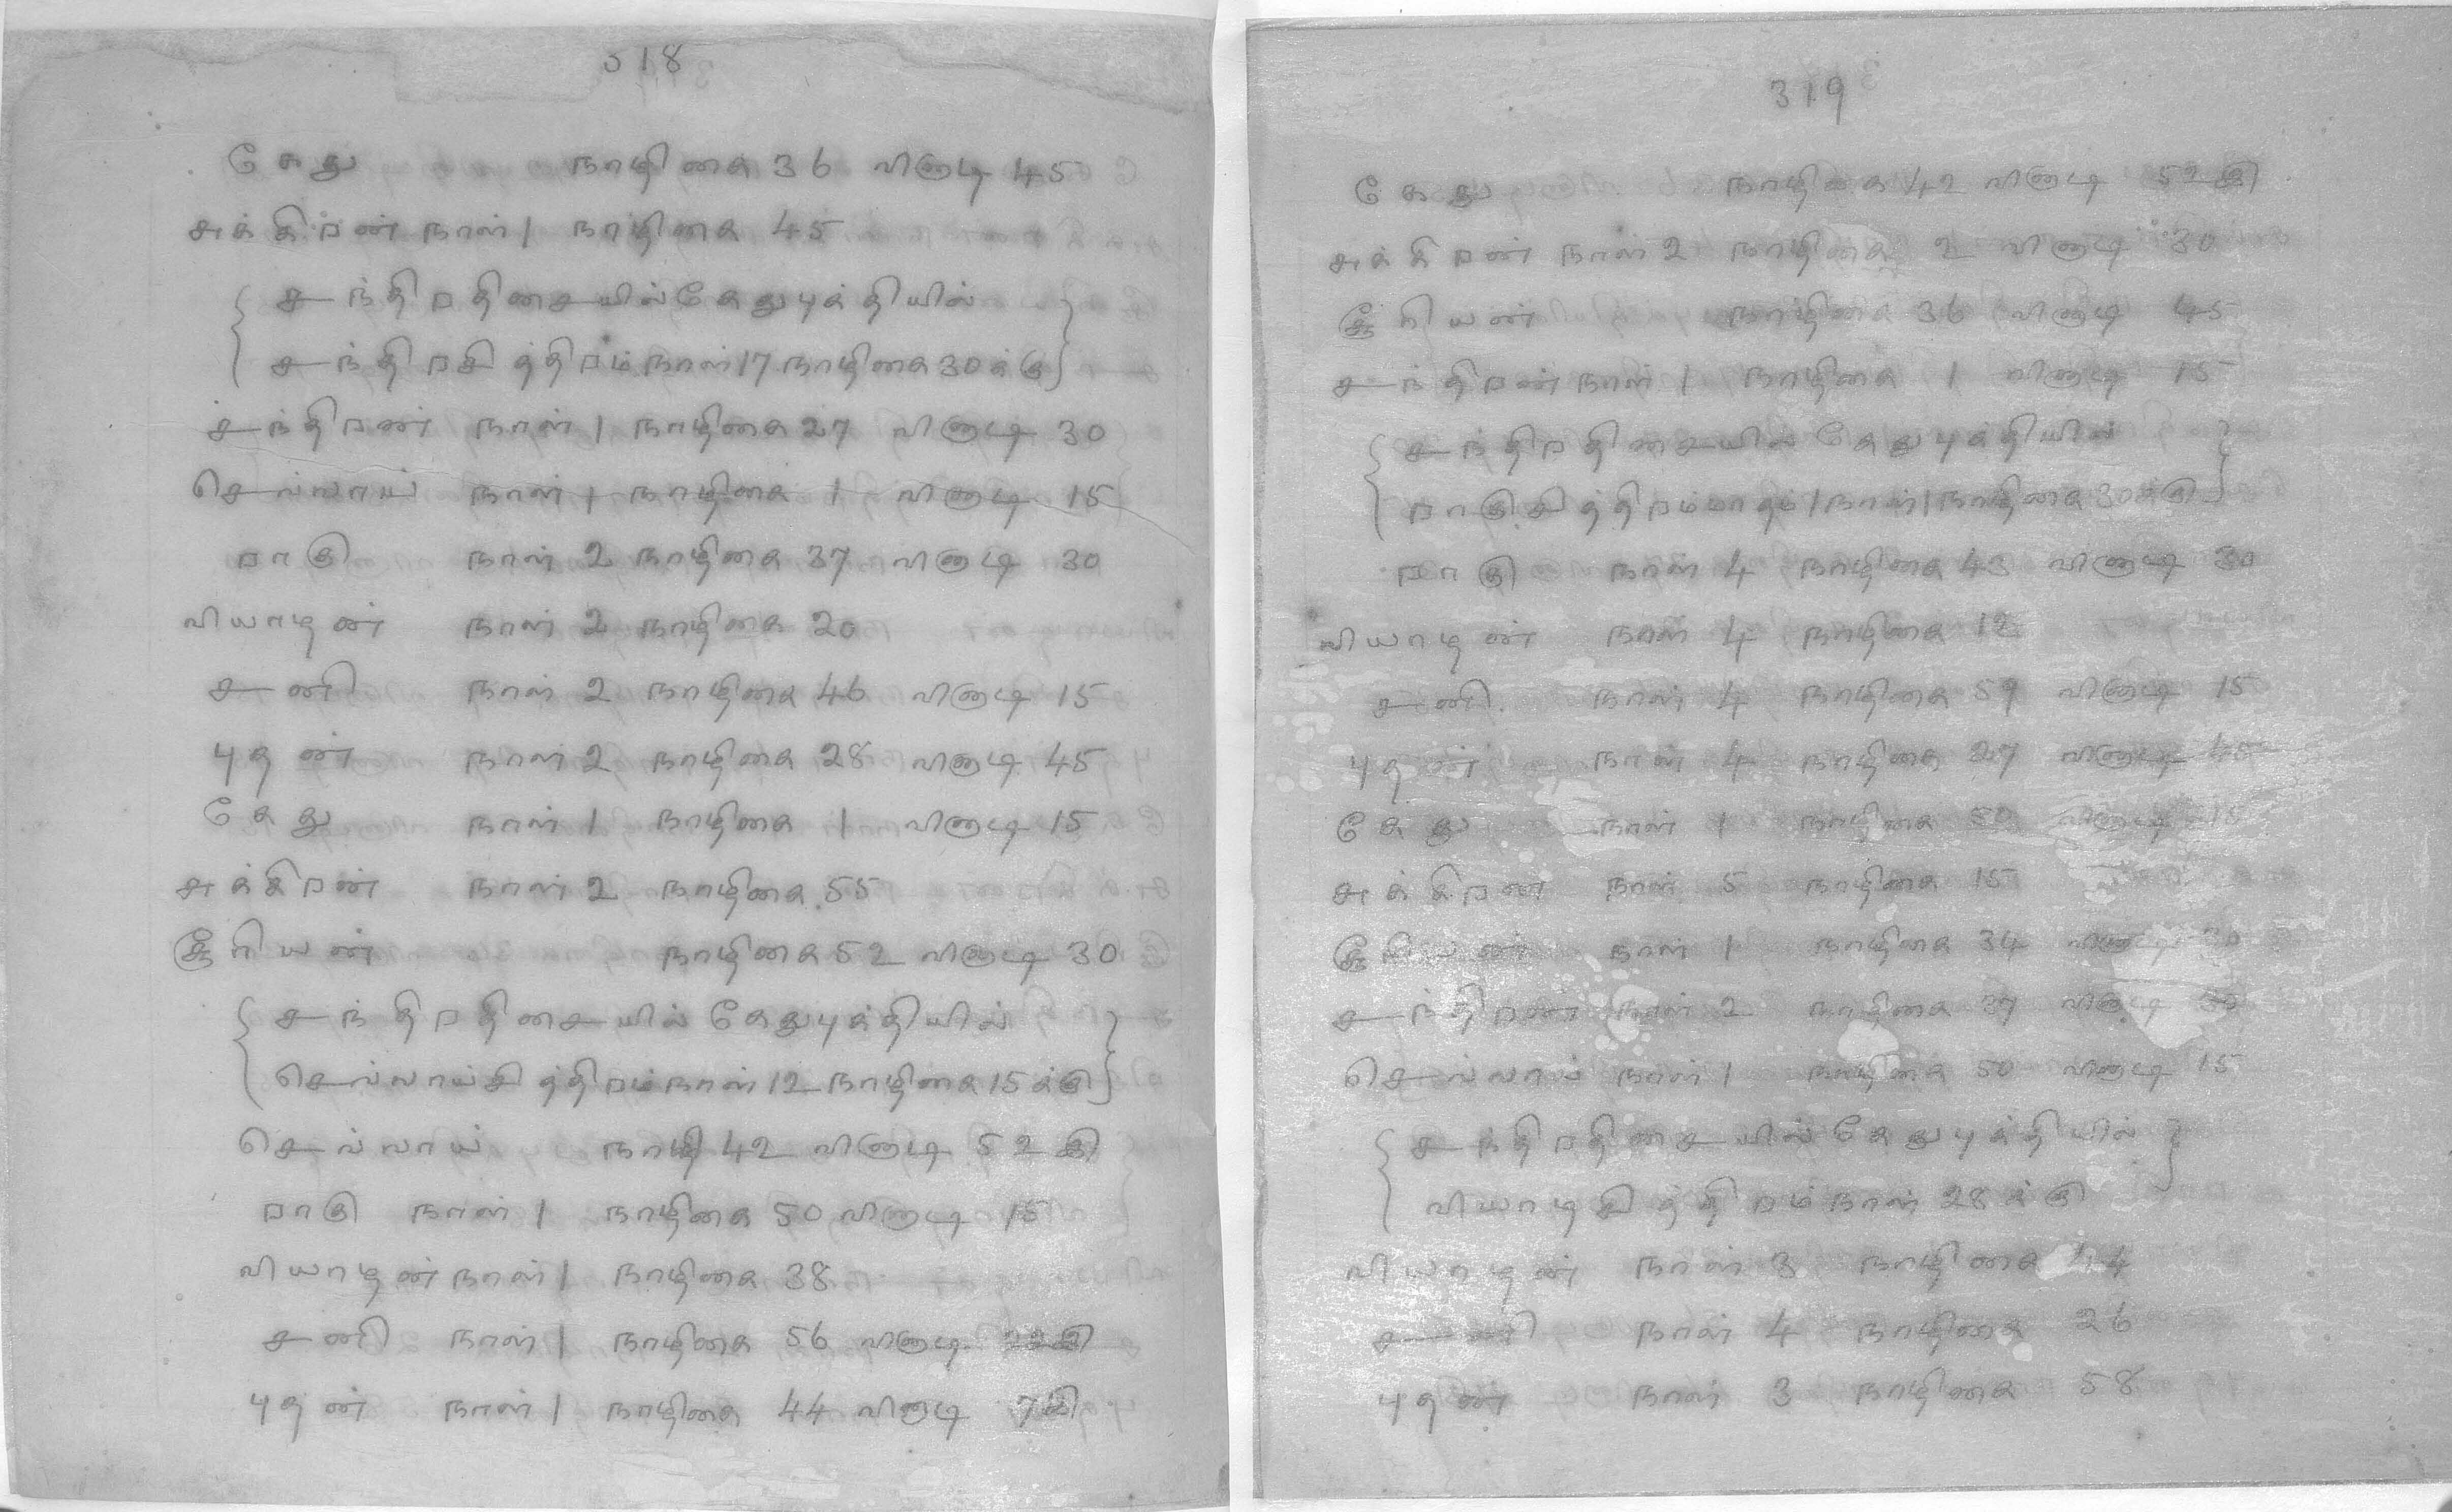 318
கேது நாழிகை 36 வினாடி 45
சுக்கிரன் நாள் 1 நாழிகை 45
{ சந்திரதிசையில் கேது புக்தியில் }
{ சந்திரசித்திரம் நாள் 17 நாழிகை 30க்கு }
சந்திரன் நாள் 1 நாழிகை 27 வினாடி 30
செவ்வாய் நாள் 1 நாழிகை 1 வினாடி 15
ராகு நாள் 2 நாழிகை 37 வினாடி 30
வியாழன் நாள் 2 நாழிகை 20
சனி நாள் 2 நாழிகை 46 வினாடி 15
புதன் நாள் 2 நாழிகை 28 வினாடி 45
கேது நாள் 1 நாழிகை 1 வினாடி 15
சுக்கிரன் நாள் 2 நாழிகை 55
சூரியன் நாழிகை 52 வினாடி 30
{ சந்திரதிசையில் கேதுபுக்தியில் }
{ செவ்வாய்சித்திரம் நாள் 12 நாழிகை 15க்கு }
செவ்வாய் நாழி 42 வினாடி 52 இ
ராகு நாள் 1 நாழிகை 50 வினாடி 15
வியாழன் நாள் 1 நாழிகை 38
சனி நாள் 1 நாழிகை 56 வினாடி 22இ
புதன் நாள் 1 நாழிகை 44 வினாடி 7இ
319
கேது நாழிகை 42 வினாடி 52இ
சுக்கிரன் நாள் 2 நாழிகை 2 வினாடி 30
சூரியன் நாழிகை 36 வினாடி 45
சந்திரன் நாள் 1 நாழிகை 1 வினாடி 15
{ சந்திரதிசையில் கேதுபுக்தியில் }
{ ராகுசித்திரம் மாதம் 1 நாள் 1 நாழிகை 30க்கு }
ராகு நாள் 4 நாழிகை 43 வினாடி 30
வியாழன் நாள் 4 நாழிகை 12
சனி நாள் 4 நாழிகை 59 வினாடி 15
புதன் நாள் 4 நாழிகை 27 வினாடி 45
கேது நாள் 1 நாழிகை 50 வினாடி 15
சுக்கிரன் நாள் 5 நாழிகை 15
சூரியன் நாள் 1 நாழிகை 34 வினாடி 30
சந்திரன் நாள் 2 நாழிகை 37 வினாடி 30
செவ்வாய் நாள் 1 நாழிகை 50 வினாடி 15
{ சந்திரதிசையில் கேதுபுக்தியில் }
{ வியாழசித்திரம் நாள் 28க்கு
வியாழன் நாள் 3 நாழிகை 44
சனி நாள் 4 நாழிகை 26
புதன் நாள் 3 நாழிகை 58